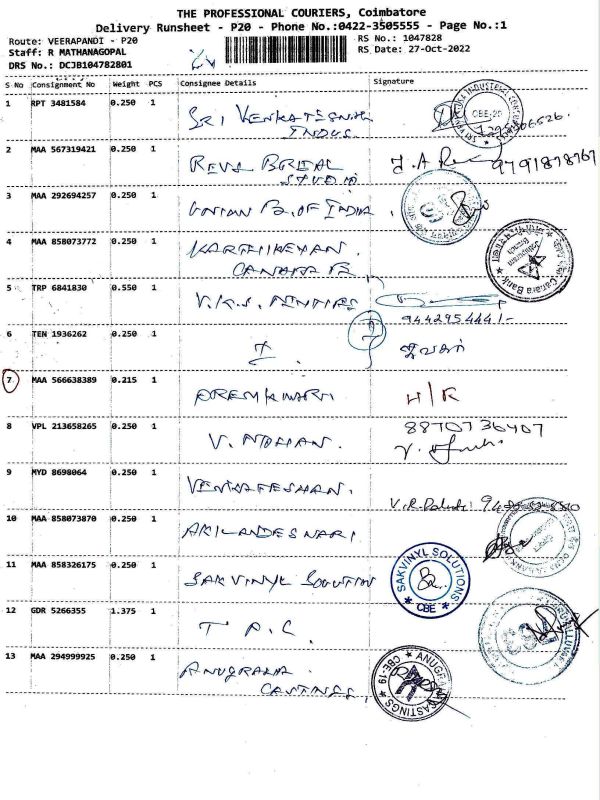 THE PROFESSIONAL COURIERS, Coimbatore
Delivery Runsheet - P20 - Phone No.:0422-3505555 - Page No.:1
Route: VEERAPANDI - P20
RS No.: 1047828
Staff: R MATHANAGOPAL
RS Date: 27-Oct-2022
DRS No.: DCJB104782801
S No Consignment No Weight PCS Consignee Details Signature
1 RPT 3481584 0.250 1 SRI VENKATESWARA
INDUS.
CBE-20
2 MAA 567319421 0.250 1 REVA BREAL
STUDIO
9791878767
3 MAA 292694257 0.250 1 UNION B. OF INDIA
4 MAA 858073772 0.250 1 KARTHIKEYAN.
CANARA
Canara Bank
5 TRP 6841830 0.550 1 V.K.S.
9442954441-
6 TEN 1936262 0.250 1 I.
7 MAA 566638389 0.215 1 PREMKUMARI H/R
8 VPL 213658265 0.250 1 V. MOHAN. 8870736407
9 MYD 8698064 0.250 1 VENKATESHAN.
10 MAA 858073870 0.250 1 AKILANDESWARI
11 MAA 858326175 0.250 1 SAKVINYL SOLUTION
SAKVINYL SOLUTIONS
CBE
12 GDR 5266355 1.375 1 T P.C.
13 MAA 294999925 0.250 1 ANUGRAHA
CASTINGS.
CBE-19 ANUGRAHA CASTINGS